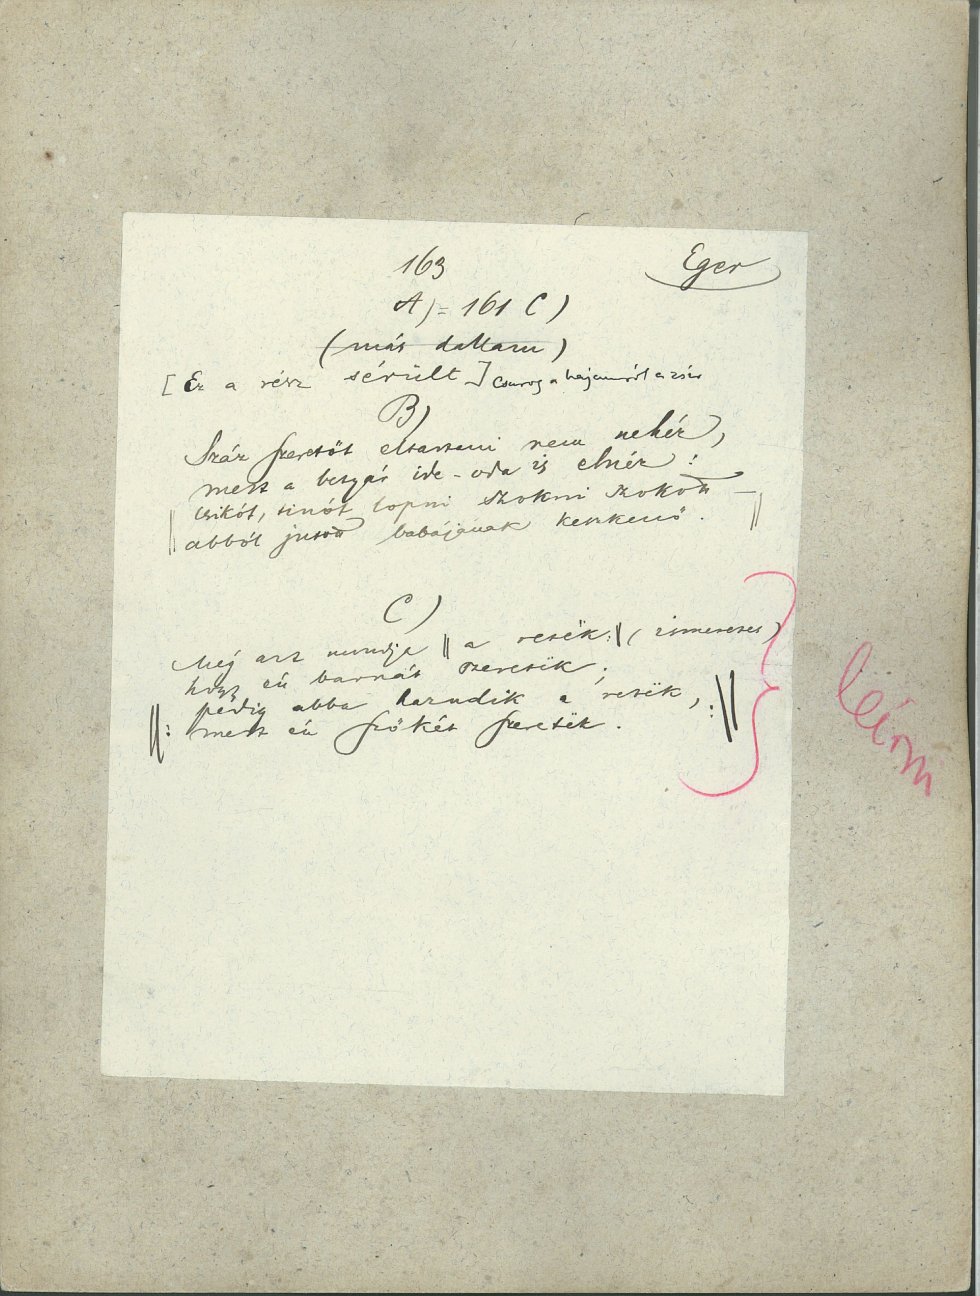 163
Eger
A) = 161 C)
(más dallam)
[Ez a rész sérült] Csurog a hajamról a zsír
B)
Száz szeretőt eltartani nem nehéz,
mert a betyár ide-oda is elnéz:
csikót, tinót lopni szokni szokott
abból jutott babájának keszkenő.
C)
Még azt mondja || a retëk :|| (ismeretes)
hogy én barnát szeretëk;
||: pedig abba hazudik a 'retëk,
mert én szőkét szeretëk. :||
leírni